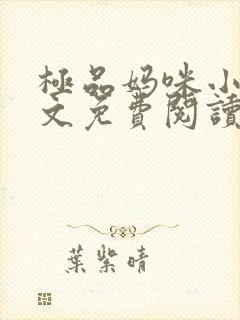 極品妈咪小
文免費閱讀
葉紫晴